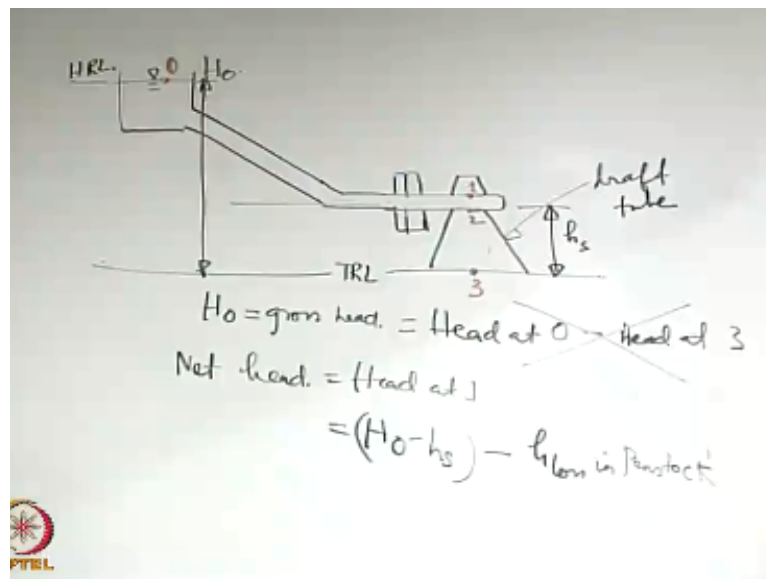 HRL. 0 Ho.
1
2
draft
tube
hs
TRL
3
Ho = gross head. = Head at 0 - Head at 3
Net head. = Head at 1
= (Ho - hs) - hloss in Penstock
PTEL